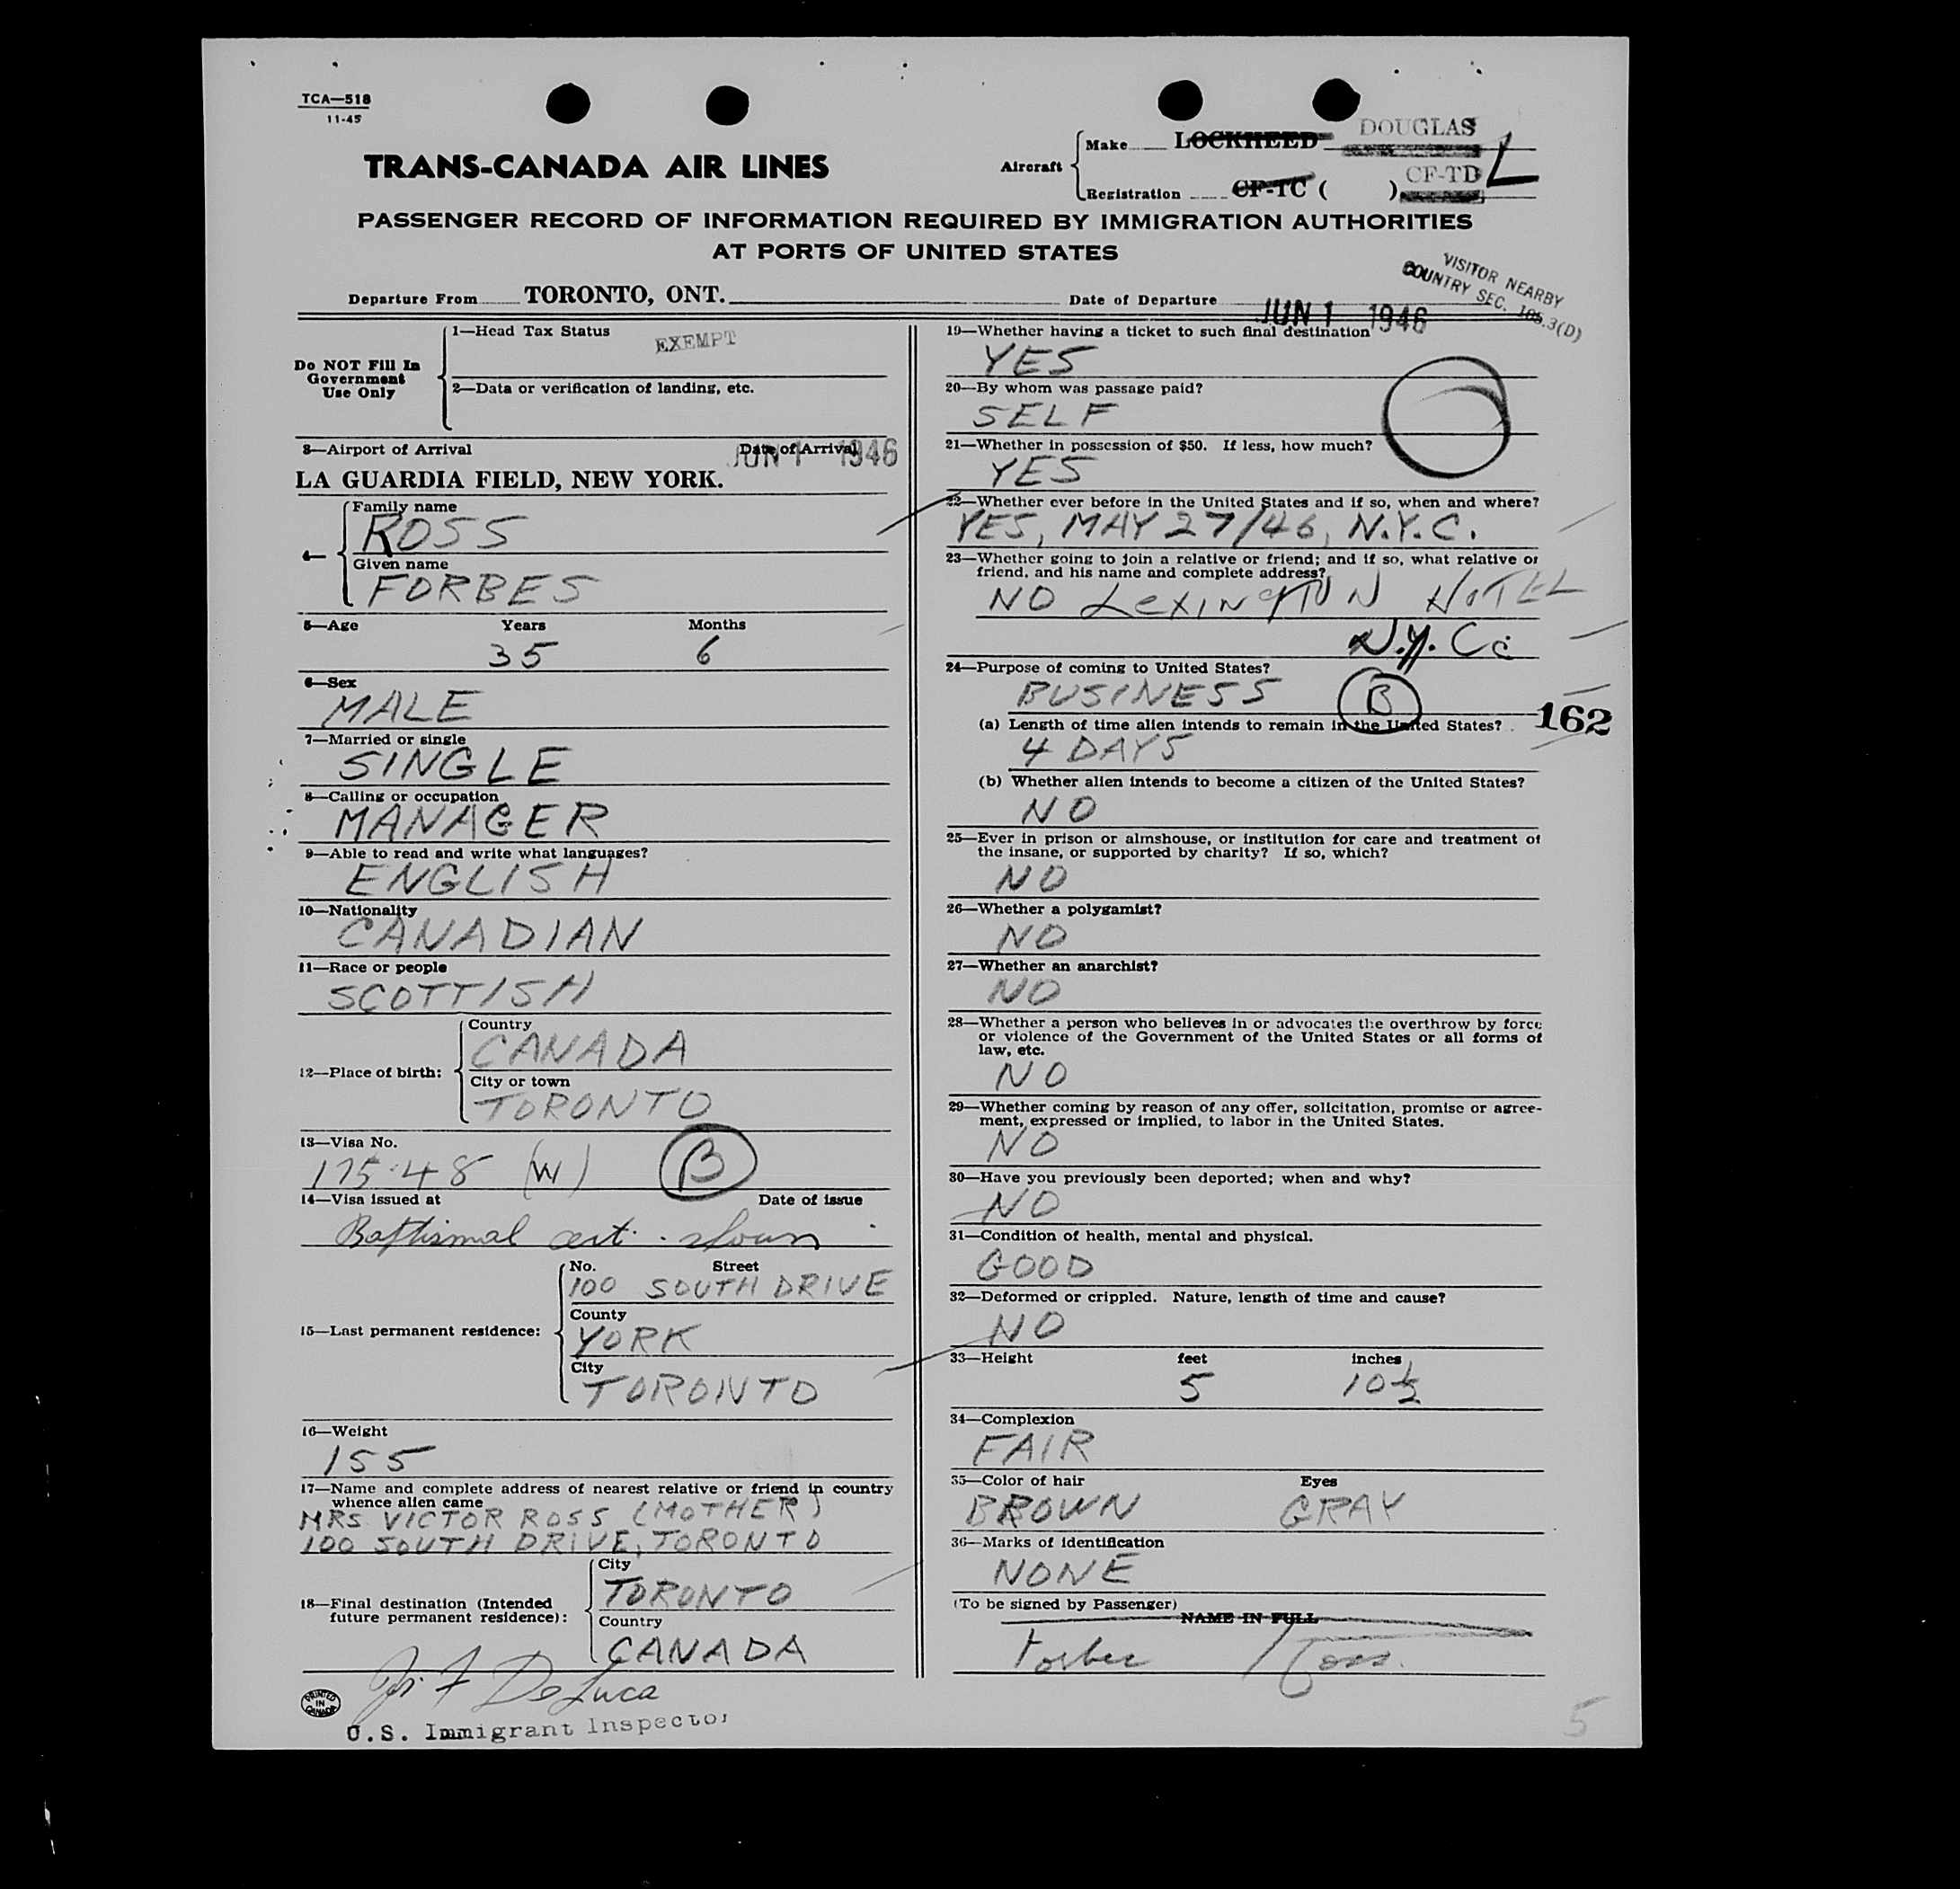 TCA—518
11-45
TRANS-CANADA AIR LINES
Aircraft
Make LOCKHEED DOUGLAS
Registration CF-TC ( ) CF-TD L
PASSENGER RECORD OF INFORMATION REQUIRED BY IMMIGRATION AUTHORITIES
AT PORTS OF UNITED STATES
VISITOR NEARBY
COUNTRY SEC. 105.3(D)
Departure From TORONTO, ONT. Date of Departure JUN 1 1946
Do NOT Fill In
Government
Use Only
1—Head Tax Status
EXEMPT
2—Data or verification of landing, etc.
3—Airport of Arrival Date of Arrival
JUN 1 1946
LA GUARDIA FIELD, NEW YORK.
4—
Family name
ROSS
Given name
FORBES
5—Age Years Months
35 6
6—Sex
MALE
7—Married or single
SINGLE
8—Calling or occupation
MANAGER
9—Able to read and write what languages?
ENGLISH
10—Nationality
CANADIAN
11—Race or people
SCOTTISH
12—Place of birth:
Country
CANADA
City or town
TORONTO
13—Visa No.
175.48 (W) B
14—Visa issued at Date of issue
Baptismal cert. shown
15—Last permanent residence:
No. Street
100 SOUTH DRIVE
County
YORK
City
TORONTO
16—Weight
155
17—Name and complete address of nearest relative or friend in country
whence alien came
MRS VICTOR ROSS (MOTHER)
100 SOUTH DRIVE, TORONTO
18—Final destination (Intended
future permanent residence):
City
TORONTO
Country
CANADA
F DeLuca
U.S. Immigrant Inspector
PRINTED
IN
CANADA
19—Whether having a ticket to such final destination
YES
20—By whom was passage paid?
SELF
21—Whether in possession of $50. If less, how much?
YES
22—Whether ever before in the United States and if so, when and where?
YES, MAY 27/46, N.Y.C.
23—Whether going to join a relative or friend; and if so, what relative or
friend, and his name and complete address?
NO LEXINGTON HOTEL
N.Y. Cc
24—Purpose of coming to United States?
BUSINESS B
162
(a) Length of time alien intends to remain in the United States?
4 DAYS
(b) Whether alien intends to become a citizen of the United States?
NO
25—Ever in prison or almshouse, or institution for care and treatment of
the insane, or supported by charity? If so, which?
NO
26—Whether a polygamist?
NO
27—Whether an anarchist?
NO
28—Whether a person who believes in or advocates the overthrow by force
or violence of the Government of the United States or all forms of
law, etc.
NO
29—Whether coming by reason of any offer, solicitation, promise or agree-
ment, expressed or implied, to labor in the United States.
NO
30—Have you previously been deported; when and why?
NO
31—Condition of health, mental and physical.
GOOD
32—Deformed or crippled. Nature, length of time and cause?
NO
33—Height feet inches
5 10½
34—Complexion
FAIR
35—Color of hair Eyes
BROWN GRAY
36—Marks of identification
NONE
(To be signed by Passenger)
NAME IN FULL
Forbes Ross.
5